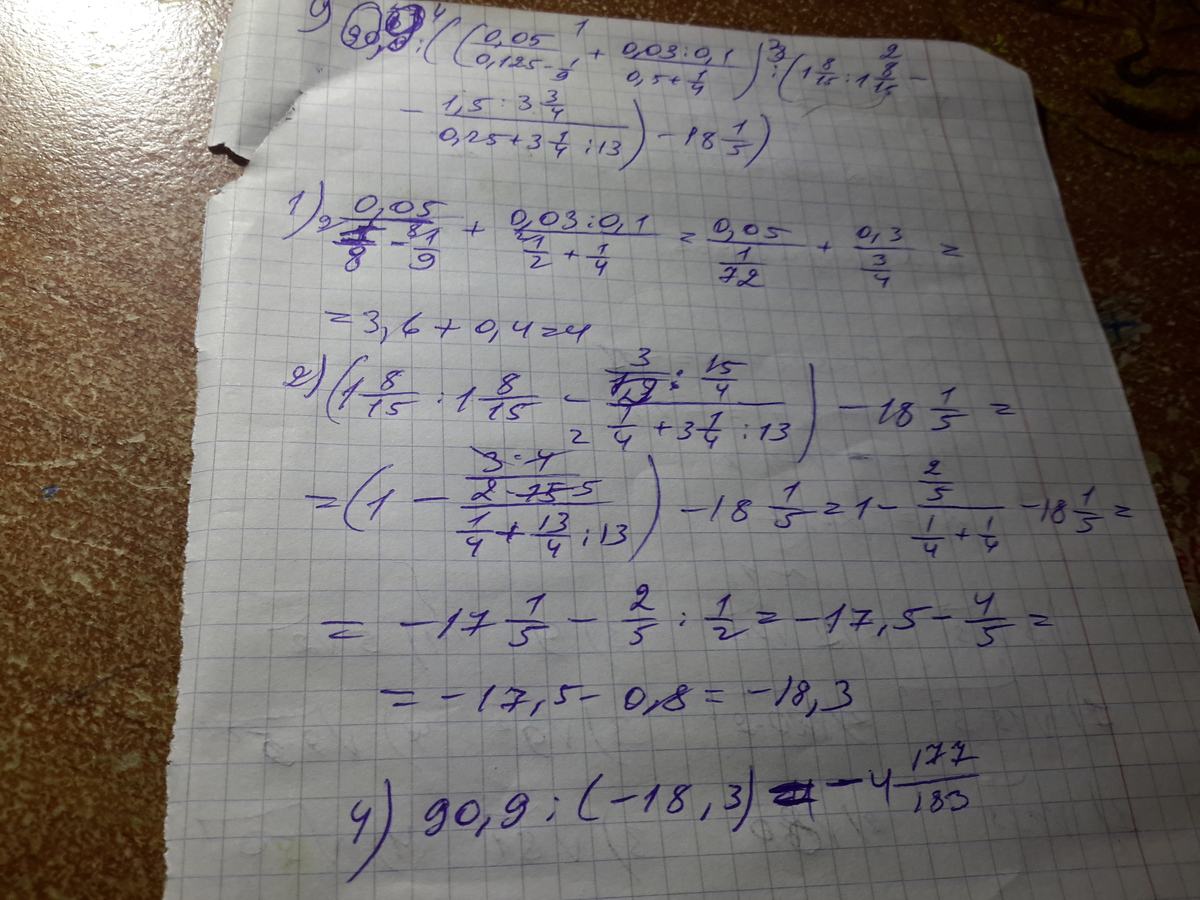 90,9 : ((0,05/(0,125 - 1/9) + 0,03 : 0,1/(0,5 + 1/4)) : (1 8/15 : 1 8/15 -
- 1,5 : 3 3/4/(0,25 + 3 1/4 : 13)) - 18 1/5)
1) 0,05/(1/8 - 1/9) + 0,03 : 0,1/(1/2 + 1/4) = 0,05/(1/72) + 0,3/(3/4) =
= 3,6 + 0,4 = 4
2) (1 8/15 : 1 8/15 - (3/2 : 15/4)/(1/4 + 3 1/4 : 13)) - 18 1/5 =
= (1 - (3 · 4/2 · 15 5)/(1/4 + 13/4 : 13)) - 18 1/5 = 1 - (2/5)/(1/4 + 1/4) - 18 1/5 =
= -17 1/5 - 2/5 : 1/2 = -17,5 - 4/5 =
= -17,5 - 0,8 = -18,3
4) 90,9 : (-18,3) - 4 177/183